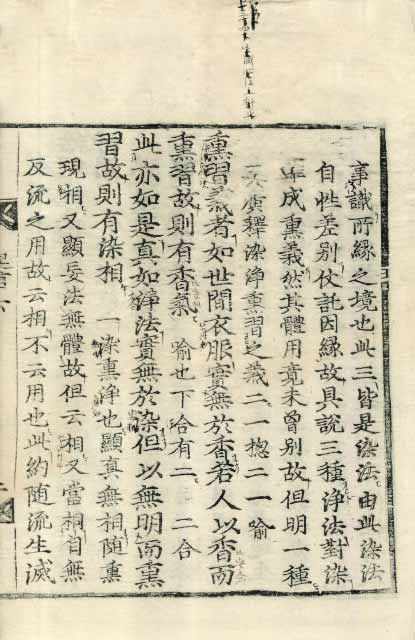 事識所緣之境也此三皆是染法由此染法
自性差別仗託因緣故具說三種淨法對染
成熏義然其體用竟未曾別故但明一種
二廣釋染淨熏習之義二一揔二一喻
熏習義者如世間衣服實無於香若人以香而
熏習故則有香氣 喻也下合有二 二合
此亦如是真如淨法實無於染但以無明而熏
習故則有染相 染熏淨也顯真無相隨熏
現相又顯妄法無體故但云相又當相自無
反流之用故云相不云用也此約随流生滅